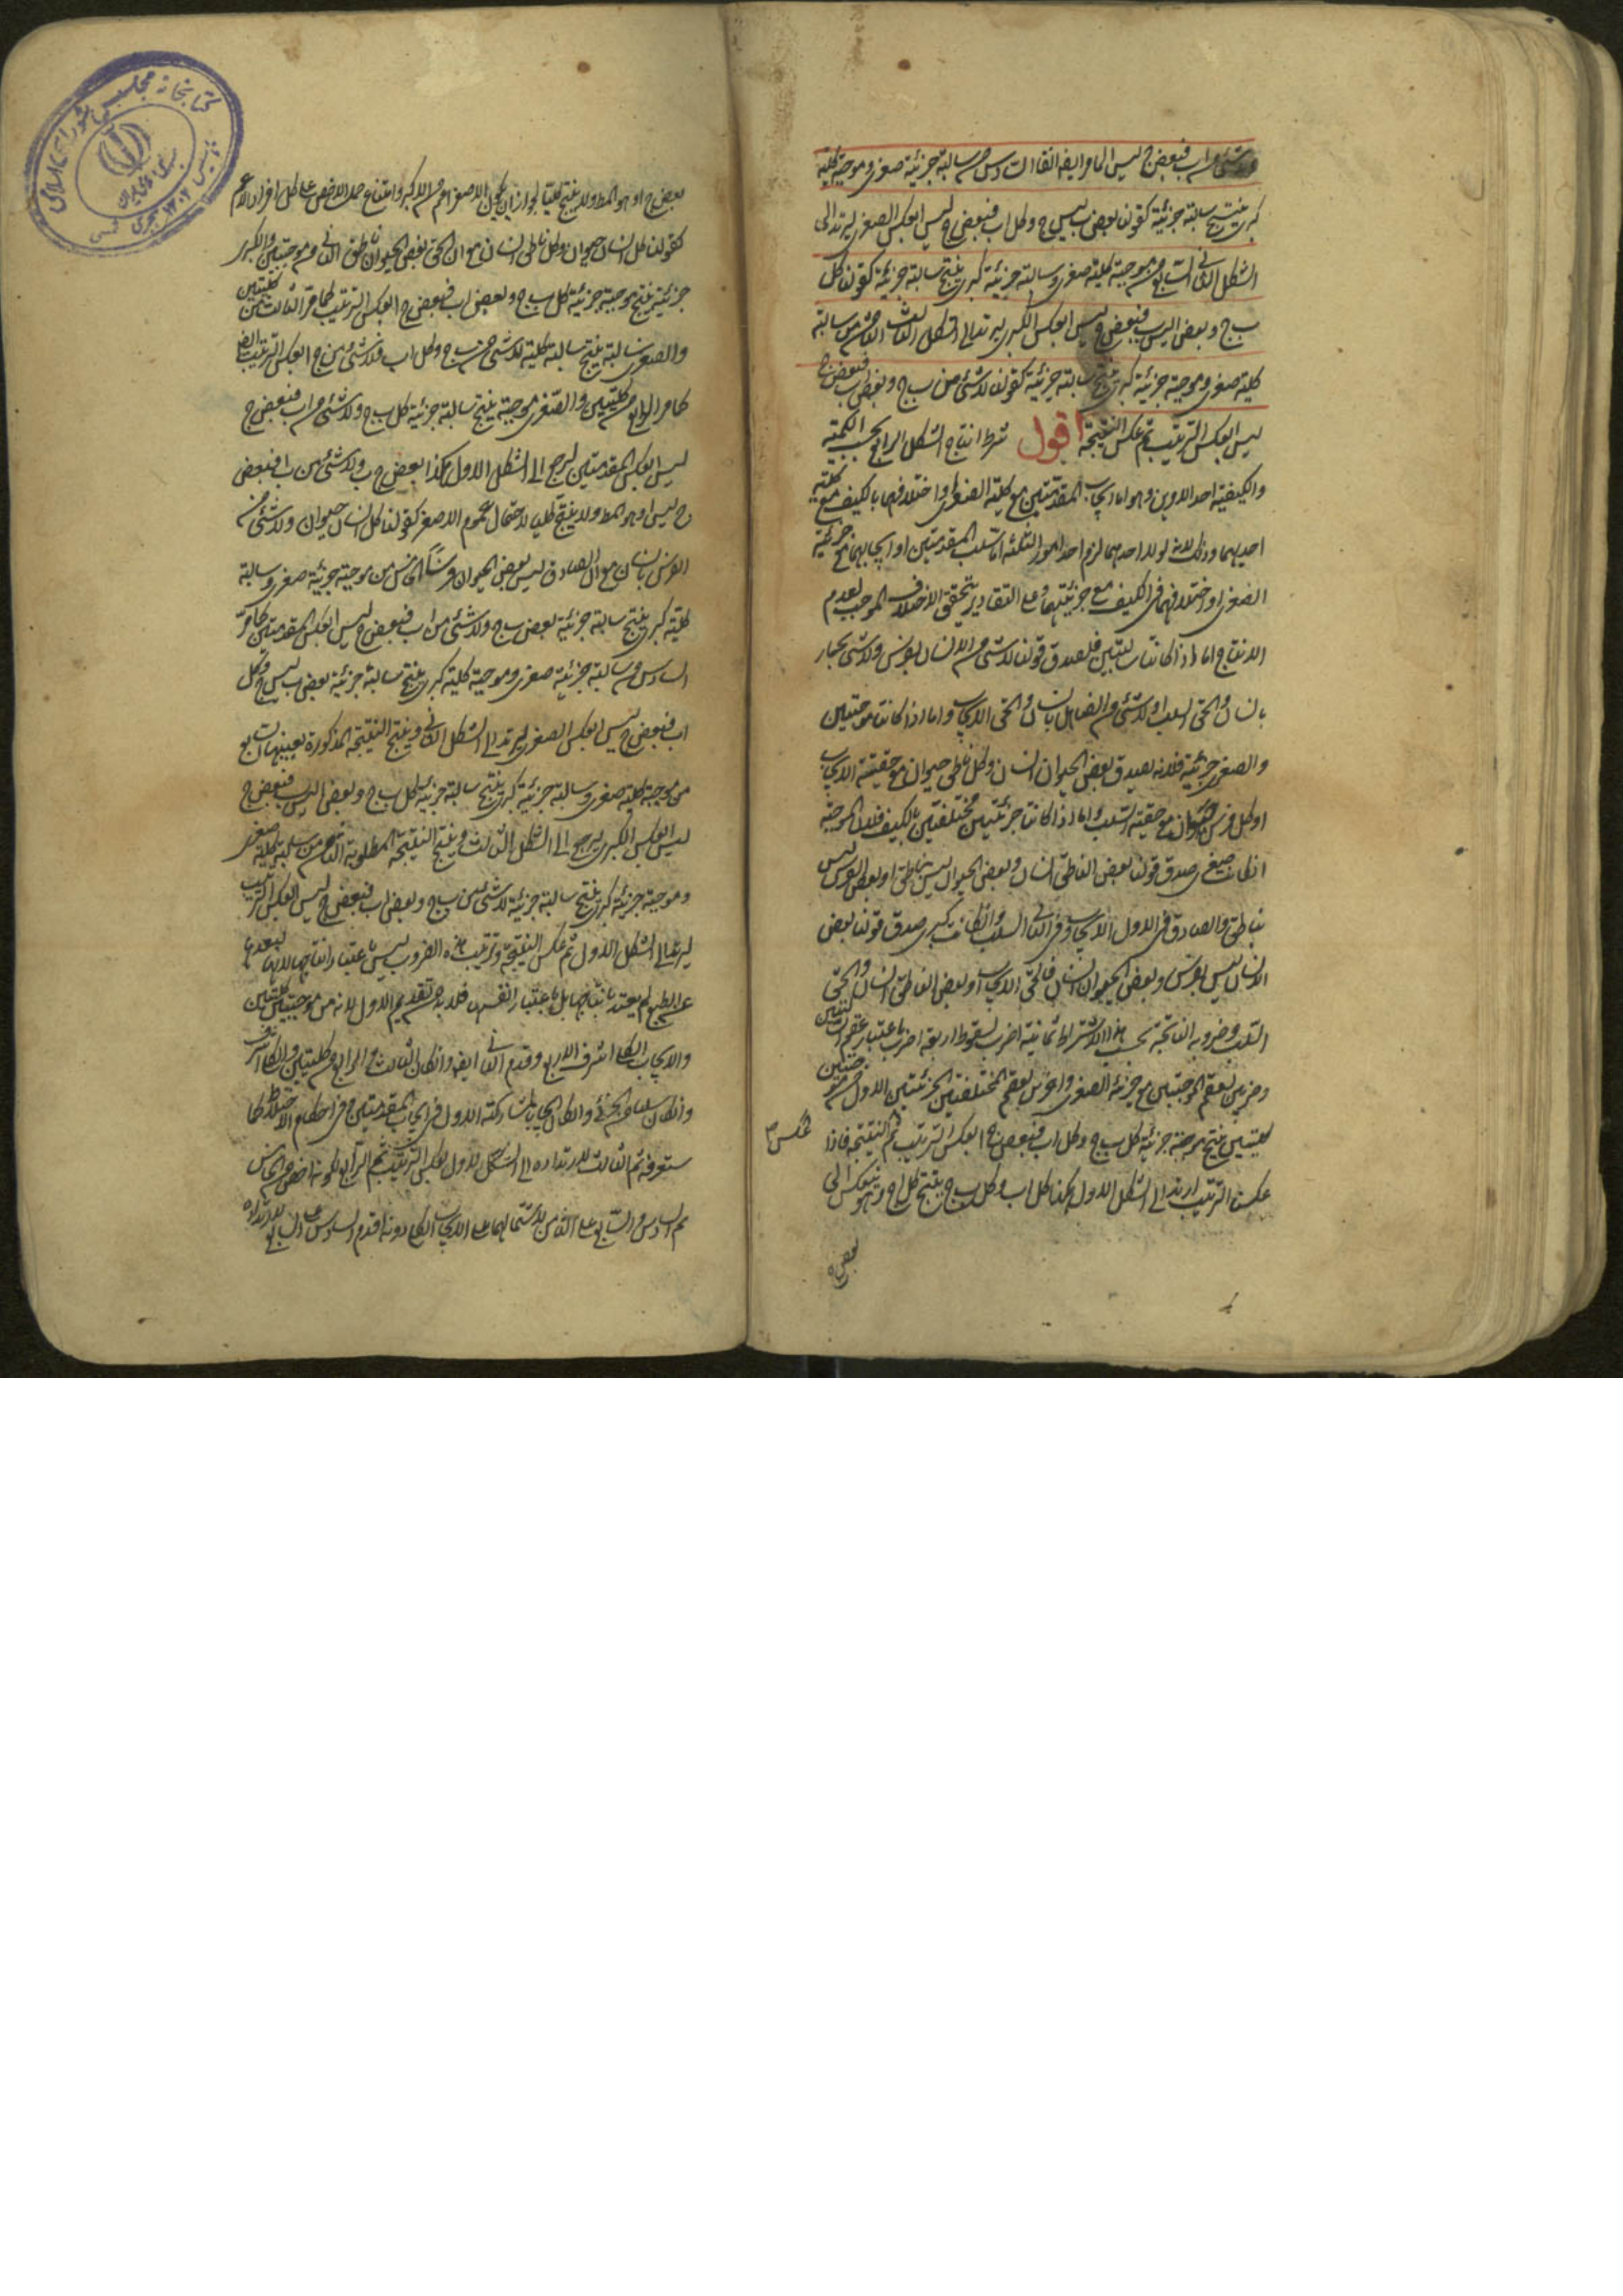 شئ من اب فبعض ج ليس ا لما مر ايضا السادس من سالبة جزئية صغرى وموجبة كلية
كبرى ينتج سالبة جزئية كقولنا بعض ب ليس ج وكل اب فبعض ج ليس ا بعكس الصغرى ليرتد الى
الشكل الثانى السابع من موجبة كلية صغرى وسالبة جزئية كبرى ينتج سالبة جزئية كقولنا كل
ب ج وبعض ا ليس ب فبعض ج ليس ا بعكس الكبرى ليرتد الى الشكل الثالث الثامن من سالبة
كلية صغرى وموجبة جزئية كبرى ينتج سالبة جزئية كقولنا لا شئ من ب ج وبعض اب فبعض ج
ليس ا بعكس الترتيب ثم عكس النتيجة اقول شرط انتاج الشكل الرابع بحسب الكمية
والكيفية احد الامرين وهو اما ايجاب المقدمتين مع كلية الصغرى او اختلافهما بالكيف مع كلية
احديهما وذلك لانه لولا احدهما لزم احد امور الثلثة اما سلب المقدمتين او ايجابهما مع جزئية
الصغرى او اختلافهما فى الكيف مع جزئيتهما وعلى التقادير يتحقق الاختلاف الموجب لعدم
الانتاج اما اذا كانتا سالبتين فلصدق قولنا لا شئ من الانسان بفرس ولا شئ من الحمار
بانسان والحق السلب او لا شئ من الصاهل بانسان والحق الايجاب واما اذا كانتا موجبتين
والصغرى جزئية فلانه يصدق بعض الحيوان انسان وكل ناطق حيوان مع حقية الايجاب
او كل فرس حيوان مع حقية السلب واما اذا كانتا جزئيتين مختلفتين بالكيف فلان الموجبة
ان كانت صغرى صدق قولنا بعض الناطق انسان وبعض الحيوان ليس بناطق او بعض الفرس ليس
بناطق والصادق فى الاول الايجاب وفى الثانى السلب وان كانت كبرى صدق قولنا بعض
الانسان ليس بفرس وبعض الحيوان انسان فالحق الايجاب او بعض الناطق انسان والحق
السلب وضروبه الناتجة بحسب هذا الاشتراط ثمانية اضرب لسقوط اربعة اضرب باعتبار عقم السالبتين
وضربين لعقم الموجبتين مع جزئية الصغرى واخرين لعقم المختلفتين الجزئيتين الاول من موجبتين
كليتين ينتج موجبة جزئية كل ب ج وكل اب فبعض ج ا بعكس الترتيب ثم النتيجة فاذا
عكس
عكسنا الترتيب ارتد الى الشكل الاول هكذا كل اب وكل ب ج ينتج كل ا ج وهو ينعكس الى
بعض
بعض ج ا وهو المط ولا ينتج كليا لجواز ان يكون الاصغر اعم من الاكبر وامتناع حمل الاخص على كل افراد الاعم
كقولنا كل انسان حيوان وكل ناطق انسان مع ان الحق بعض الحيوان ناطق الثانى من موجبتين والكبرى
جزئية ينتج موجبة جزئية كل ب ج وبعض اب فبعض ج ا بعكس الترتيب كما مر الثالث من كليتين
والصغرى سالبة ينتج سالبة كلية لا شئ من ب ج وكل اب فلا شئ من ج ا بعكس الترتيب ايضا
كما مر الرابع من كليتين والصغرى موجبة ينتج سالبة جزئية كل ب ج ولا شئ من اب فبعض ج
ليس ا بعكس المقدمتين ليرجع الى الشكل الاول هكذا بعض ج ب ولا شئ من ب ا فبعض
ج ليس ا وهو المط ولا ينتج كليا لاحتمال عموم الاصغر كقولنا كل انسان حيوان ولا شئ من
الفرس بانسان مع ان الصادق ليس بعض الحيوان فرسا الخامس من موجبة جزئية صغرى وسالبة
كلية كبرى ينتج سالبة جزئية بعض ب ج ولا شئ من اب فبعض ج ليس ا بعكس المقدمتين كما مر
السادس من سالبة جزئية صغرى وموجبة كلية كبرى ينتج سالبة جزئية بعض ب ليس ج وكل
اب فبعض ج ليس ا بعكس الصغرى ليرتد الى الشكل الثانى وينتج النتيجة المذكورة بعينها السابع
من موجبة كلية صغرى وسالبة جزئية كبرى ينتج سالبة جزئية كل ب ج وبعض ا ليس ب فبعض ج
ليس ا بعكس الكبرى ليرجع الى الشكل الثالث وينتج النتيجة المطلوبة الثامن من سالبة كلية صغرى
وموجبة جزئية كبرى ينتج سالبة جزئية لا شئ من ب ج وبعض اب فبعض ج ليس ا بعكس الترتيب
ليرتد الى الشكل الاول ثم عكس النتيجة وترتيب هذه الضروب ليس باعتبار انتاجها لانها لبعدها
عن الطبع لم يعتد بانتاجها بل باعتبار انفسها فلا بد من تقديم الاول لانه من موجبتين كليتين
والايجاب الكلى اشرف الاربع وقدم الثانى ايضا وان كان الثالث والرابع من كليتين والكلى اشرف
وان كان سلبا من الجزئى وان كان ايجابا لمشاركته الاول فى ايجاب المقدمتين وفى احكام الاختلاط كما
ستعرفه ثم الثالث لارتداده الى الشكل الاول بعكس الترتيب ثم الرابع لكونه اخص من الخامس
ثم السادس والسابع على الثامن لاشتمالهما على الايجاب الكلى دونه وقدم السادس على السابع لارتداده
كتابخانه مجلس شوراى اسلامى